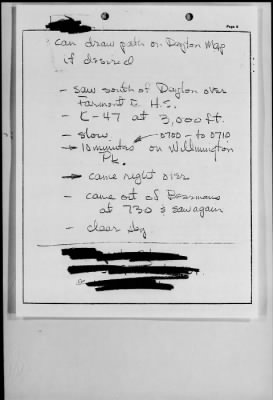 Page 2
can draw path on Dayton Map
if desired
- saw south of Dayton over
Fairmont H.S.
- K-47 at 3,000 ft.
- slow 0700 - to 0710
→ 10 minutes on Wilmington
Pk.
→ came right over
- came out of
at 730 & saw again
- clear sky